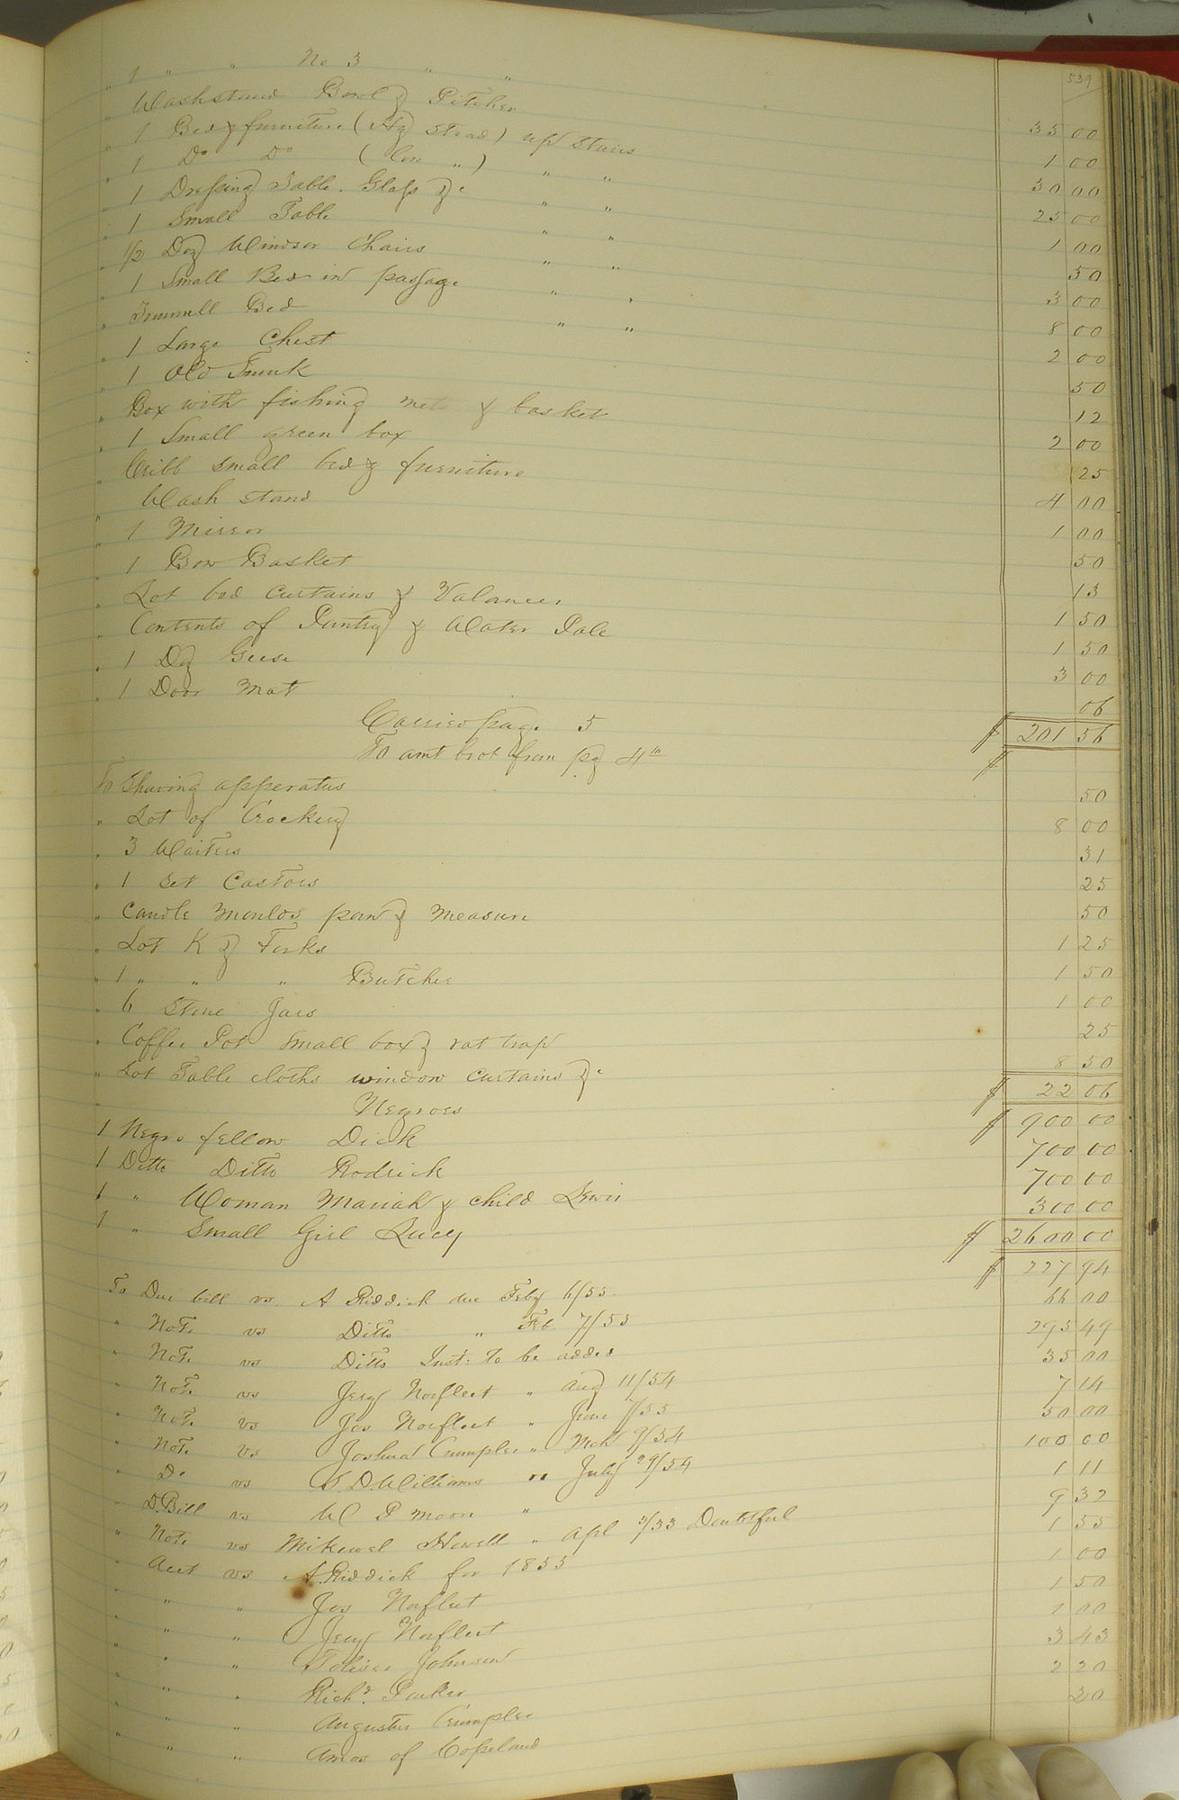 539
" 1 " " No 3 " "
" Washstand Bowl & Pitcher 35 00
" 1 Bed & furniture (Hg stead) up stairs 1 00
" 1 Do Do (low ") " " 30 00
" 1 Dressing Table. Glass &c " " 25 00
" 1 Small Table " " 1 00
" 1/2 Doz Windsor Chairs " " 50
" 1 Small Bed in passage " " 3 00
" Trunnell Bed " " 8 00
" 1 Large Chest 2 00
" 1 Old Trunk 50
" Box with fishing nets & basket 12
" 1 Small green box 2 00
" Cribb small bed & furniture 25
" Wash stand 4 00
" 1 Mirror 1 00
" 1 Bow Basket 50
" Lot bed curtains & Valances 13
" Contents of Pantry & Water Pale 1 50
" 1 Dz Geese 1 50
" 1 Door Mat 3 00
06
Carried page 5 $ 201 56
To amt brot from pg 4th $
To Shaving apperatus 50
" Lot of Crockery 8 00
" 3 Waiters 31
" 1 Set Castors 25
" Candle Moulds pan & measure 50
" Lot K & Forks 1 25
" 1 " " " Butcher 1 50
" 6 Stone Jars 1 00
" Coffee Pot small box & rat trap 25
" Lot Table cloths window curtains &c 8 50
$ 22 06
Negroes
1 Negro fellow Dick $ 900 00
1 Ditto Ditto Rodrick 700 00
1 " Woman Mariah & child Lewis 700 00
1 " Small Girl Lucy 300 00
$ 2600 00
To Due bill vs A Riddick due Feby 6/55 $ 227 94
" Note vs Ditto " Feb 7/55 66 00
" Note vs Ditto Inst: to be added 295 49
" Note vs Jery Norfleet " Aug 11/54 35 00
" Note vs Jos Norfleet " June 7/55 7 14
" Note vs Joshua Crumpler " Mch 9/54 50 00
" Do vs D. Williams " July 29/54 100 00
" D. Bill vs W P Moore " 1 11
" Note vs Mikewel Howell " Apl 3/33 Doubtful 9 37
" Acct vs A. Riddick for 1855 1 55
" " " Jos Norfleet 1 00
" " " Jery Norfleet 1 50
" " " Johnson 1 00
" " " Richd. Parker 3 43
" " " Augustus Crumpler 2 20
" " " Amos of Copeland 20